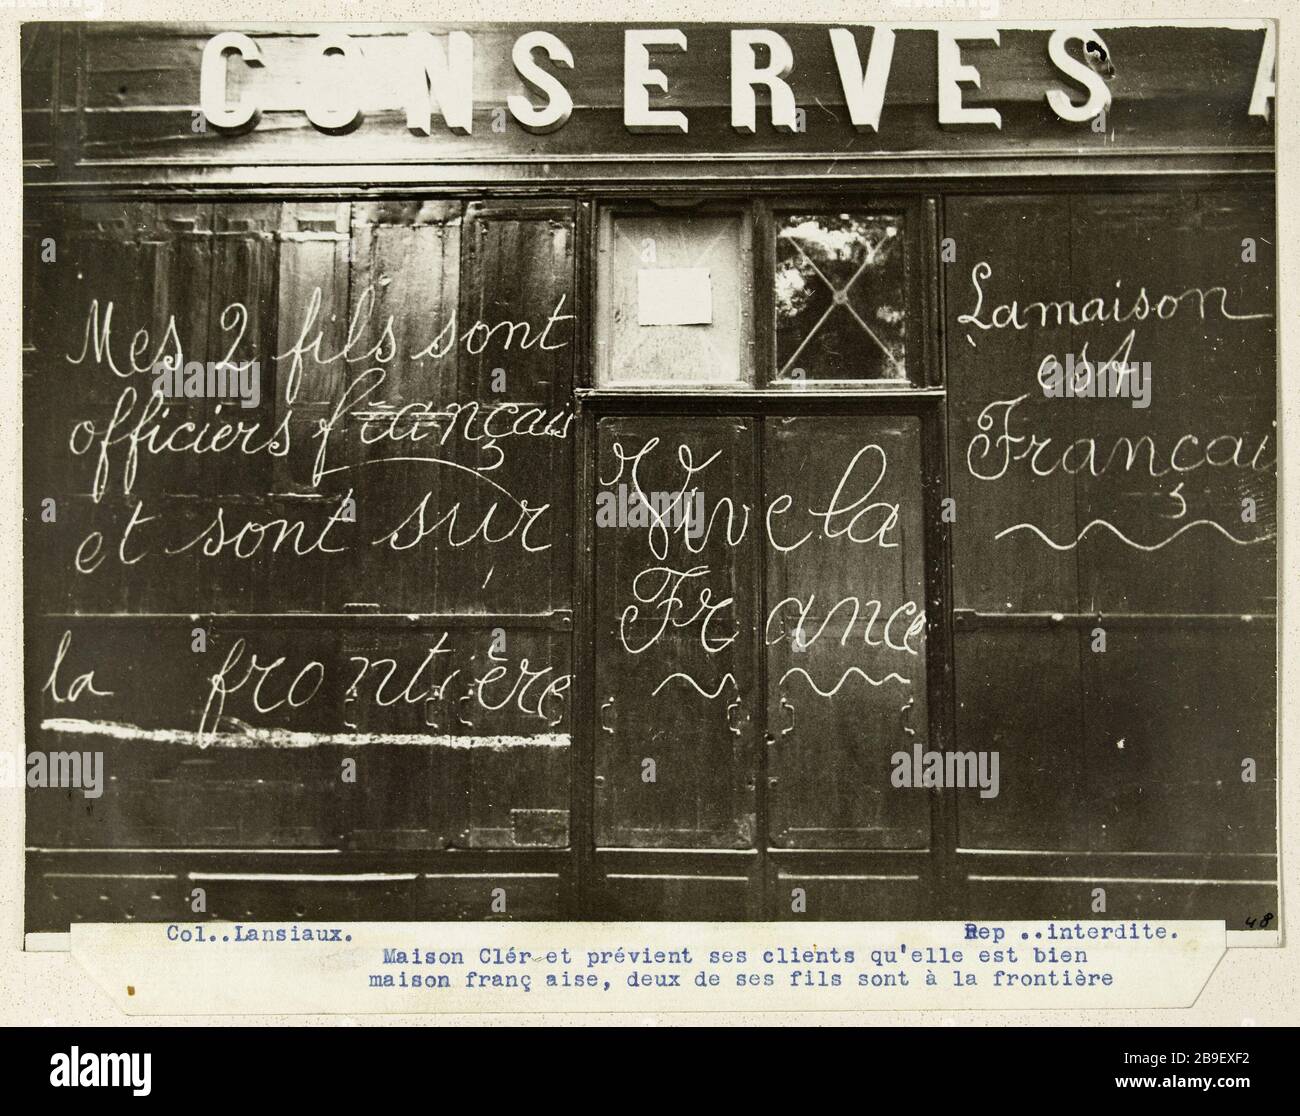 CONSERVES A
Mes 2 fils sont
officiers français
et sont sur
la frontière
Vive la
France
La maison
est
Françai
48
Col..Lansiaux.
Rep ..interdite.
Maison Clér et prévient ses clients qu'elle est bien
maison franç aise, deux de ses fils sont à la frontière
alamy
Image ID: 2B9EXF2
www.alamy.com